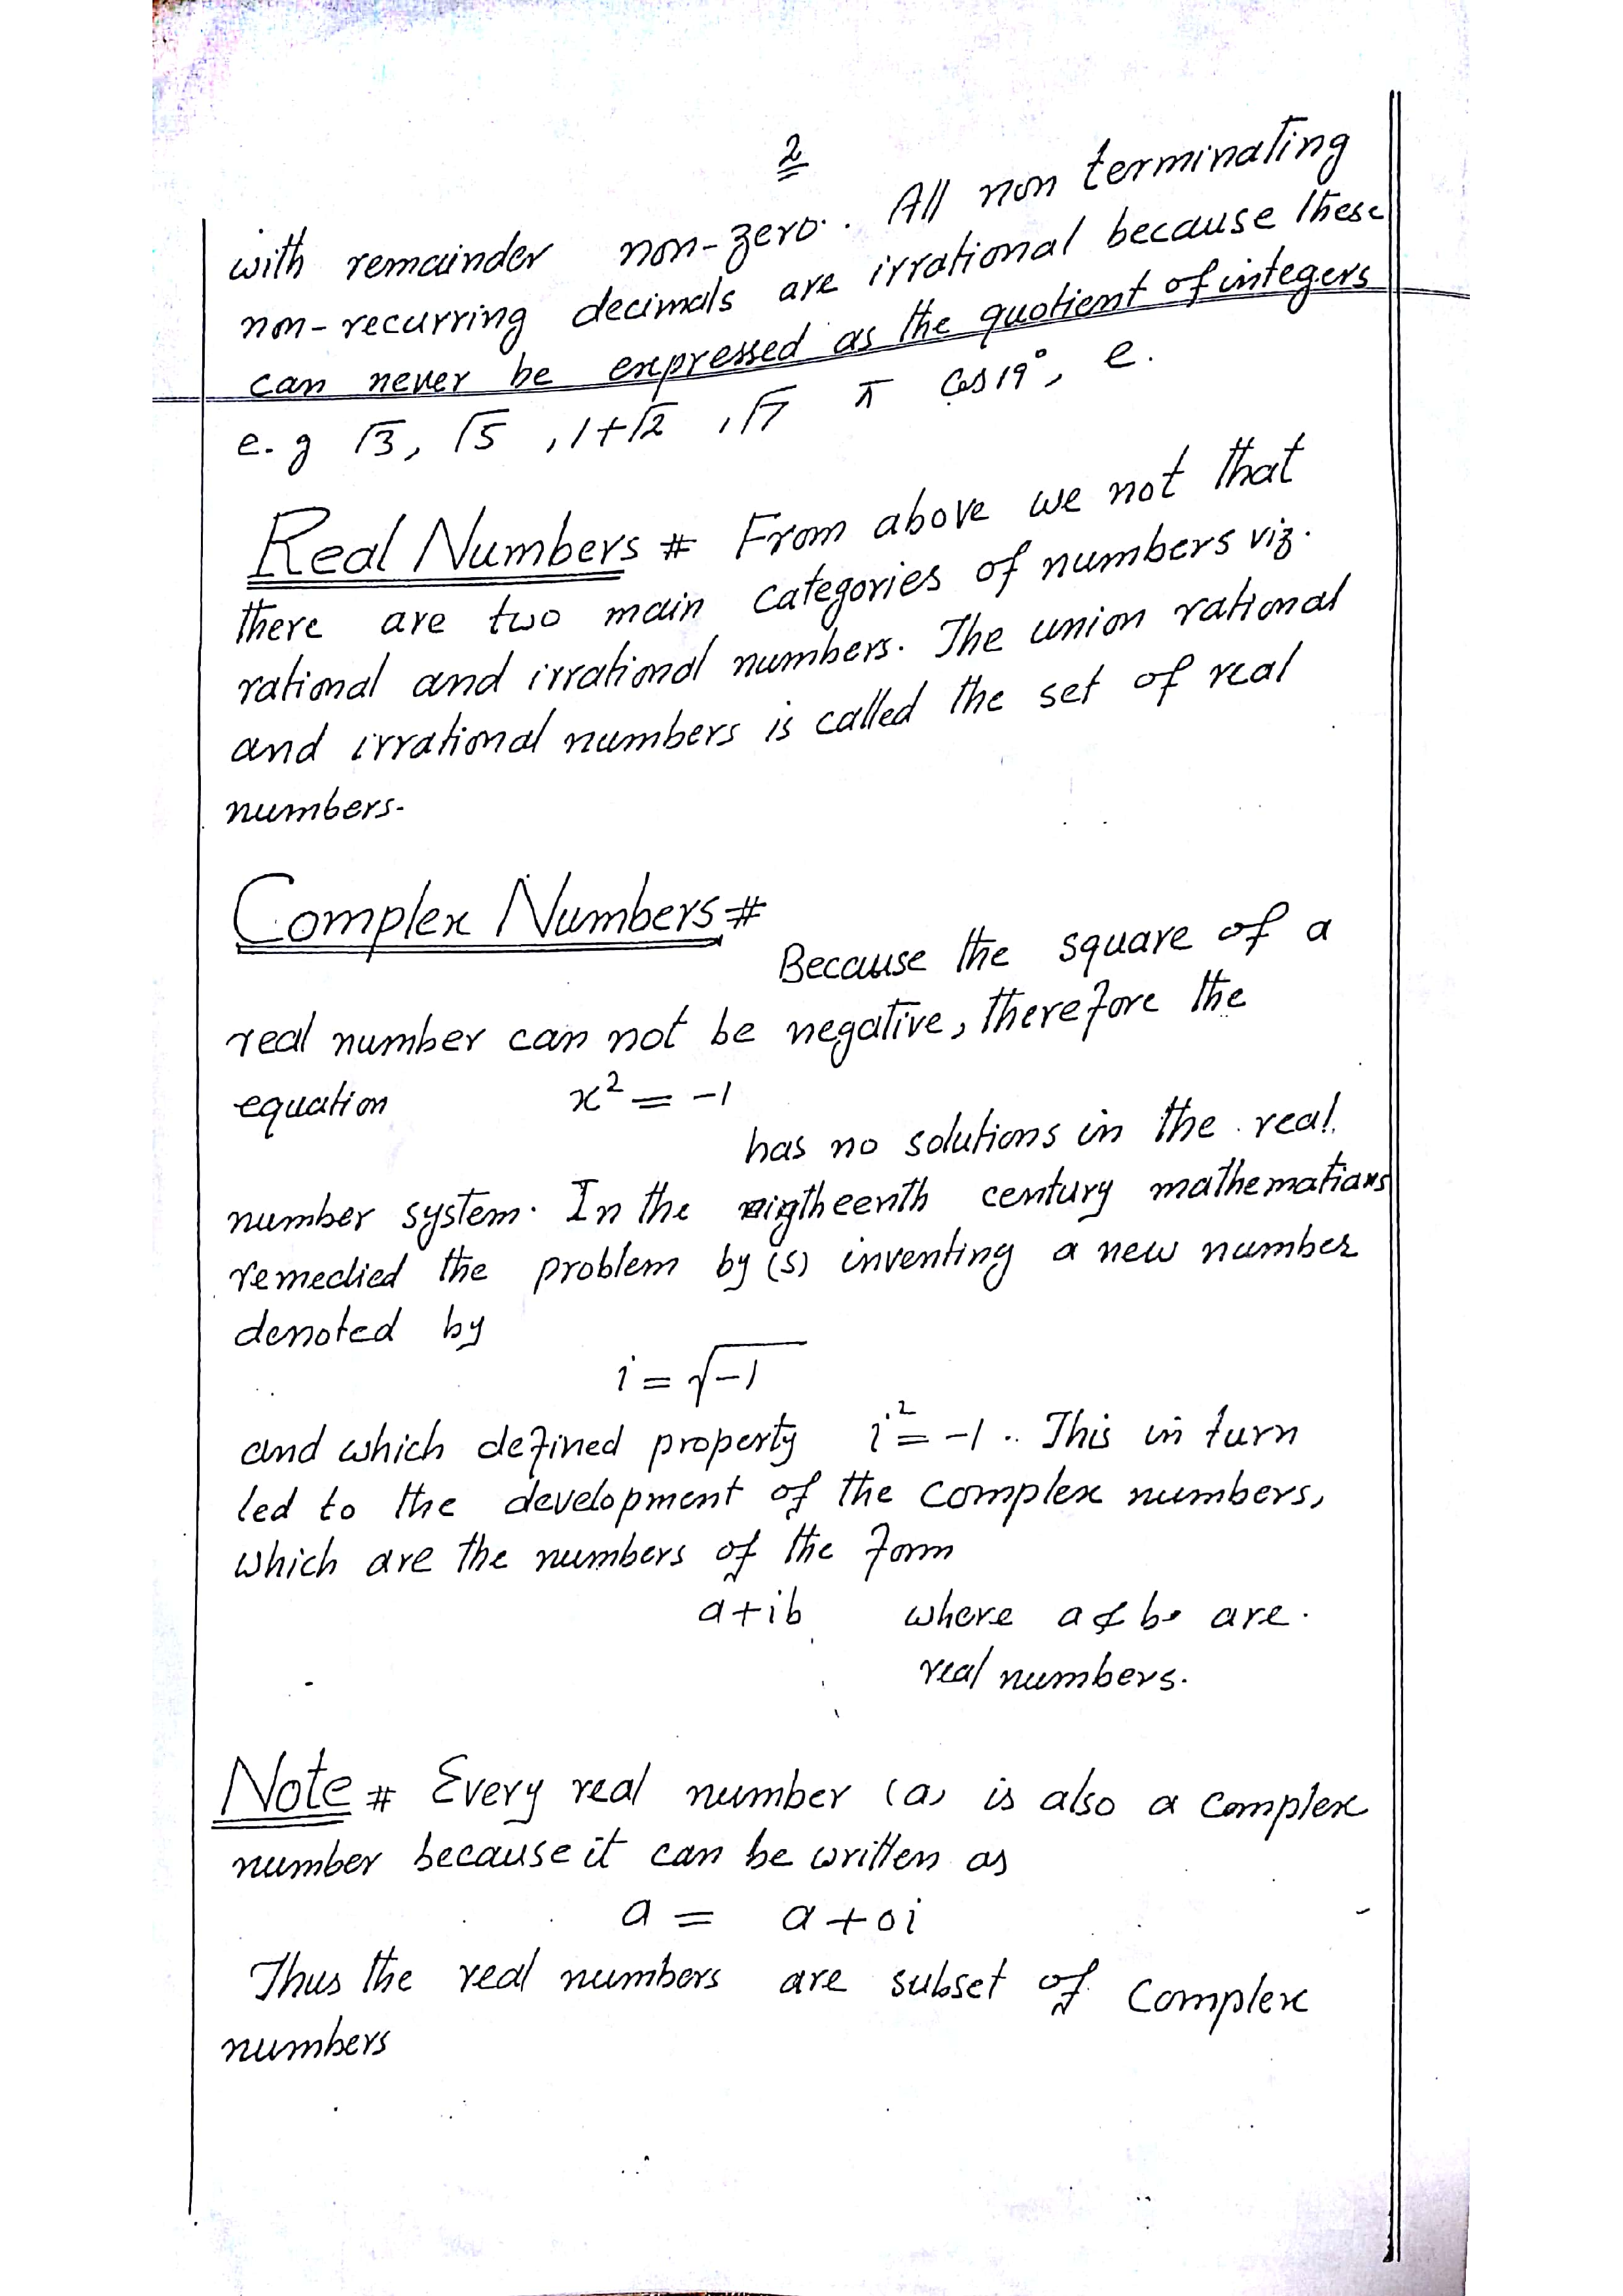 2
with remainder non-zero. All non terminating
non-recurring decimals are irrational because these
can never be expressed as the quotient of integers
e.g √3, √5, 1+√2, √7 π Cos 19°, e.
Real Numbers # From above we not that
there are two main categories of numbers viz.
rational and irrational numbers. The union rational
and irrational numbers is called the set of real
numbers.
Complex Numbers #
Because the square of a
real number can not be negative, therefore the
equation x² = -1
has no solutions in the real
number system. In the eigtheenth century mathematians
remedied the problem by (s) inventing a new number
denoted by
i = √-1
and which defined property i² = -1. This in turn
led to the development of the complex numbers,
which are the numbers of the form
a+ib where a & b are
real numbers.
Note # Every real number (a) is also a complex
number because it can be written as
a = a+0i
Thus the real numbers are subset of Complex
numbers